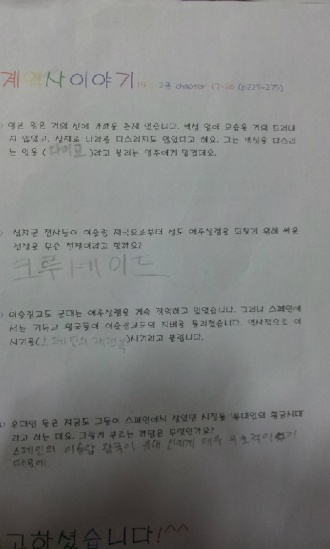 계역사이야기 2권 chapter 17-20 (p225-275)
일본 왕은 거의 신에 가까운 존재였습니다. 백성 앞에 모습을 거의 드러내
지 않았고, 실제로 나라를 다스리지도 않았다고 해요. 그는 백성을 다스리
는 일을 (다이묘)라고 불리는 영주에게 맡겼대요.
십자군 전사들이 이슬람 제국으로부터 성도 예루살렘을 되찾기 위해 싸운
전쟁을 무슨 전쟁이라고 할까요?
크루세이드
이슬람교도 군대는 예루살렘을 계속 장악하고 있었습니다. 그러나 스페인에
서는 기독교 왕국들이 이슬람교도의 지배를 물리쳤습니다. 역사적으로 이
시기를(스페인의 재정복)시기라고 부릅니다.
유대인 들은 지금도 그들이 스페인에서 살았던 시절을 '유대인의 황금시대'
라고 하는 데요. 그렇게 부르는 까닭은 무엇인가요?
스페인의 이슬람 왕국이 유대 인에게 매우 우호적이었기
때문에.
고하셨습니다!^^